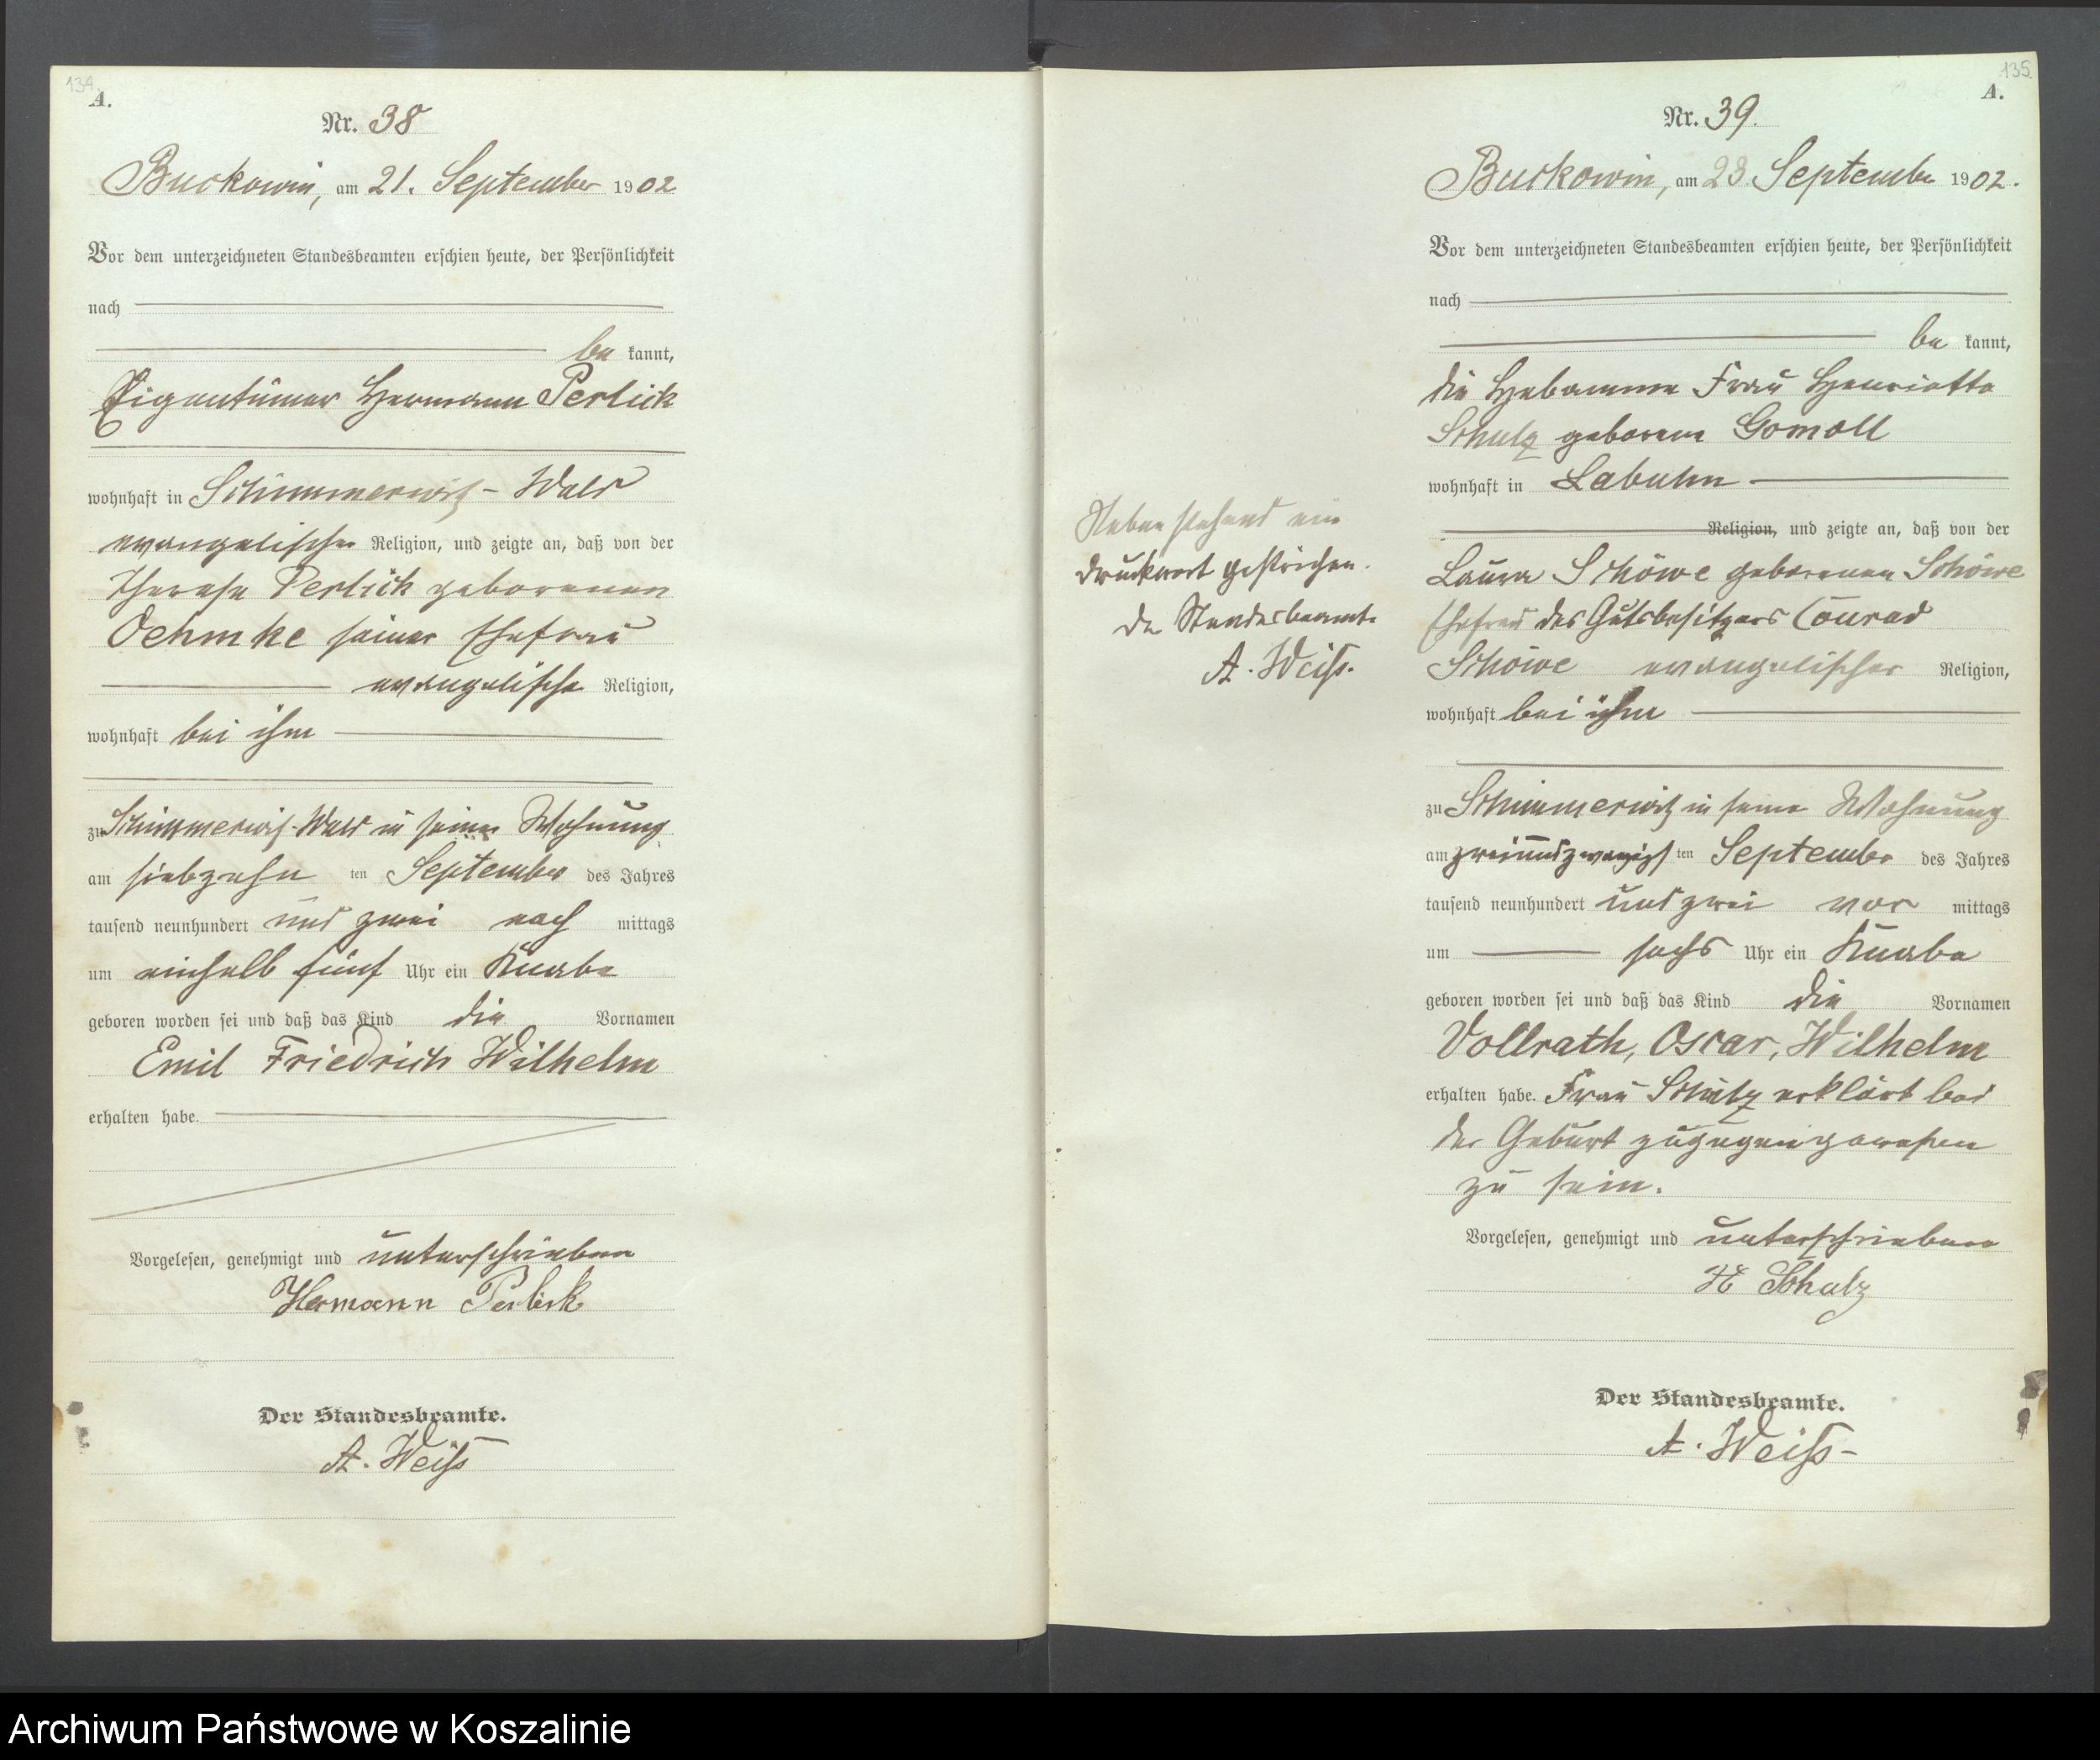 134.
A.
Nr. 38
Buckowin, am 21. September 1902
Vor dem unterzeichneten Standesbeamten erschien heute, der Persönlichkeit
nach
be kannt,
Eigentümer Hermann Perlick
wohnhaft in Schimmerwitz-Wald
evangelischer Religion, und zeigte an, daß von der
Therese Perlick geborenen
Oehmke seiner Ehefrau
evangelische Religion,
wohnhaft bei ihm
zu Schimmerwitz-Wald in seiner Wohnung
am siebzehn ten September des Jahres
tausend neunhundert und zwei nach mittags
um einhalb fünf Uhr ein Knabe
geboren worden sei und daß das Kind die Vornamen
Emil Friedrich Wilhelm
erhalten habe.
Vorgelesen, genehmigt und unterschrieben
Hermann Perlick
Der Standesbeamte.
A. Weiß
135.
A.
Nr. 39.
Buckowin, am 23 September 1902.
Vor dem unterzeichneten Standesbeamten erschien heute, der Persönlichkeit
nach
be kannt,
die Hebamme Frau Henriette
Schulz geborene Gomoll
wohnhaft in Labuhn
Religion, und zeigte an, daß von der
Laura Schöwe geborenen Schöwe
Ehefrau des Gutsbesitzers Conrad
Schöwe evangelischer Religion,
wohnhaft bei ihm
zu Schimmerwitz in seine Wohnung
am zweiundzwanzigst ten September des Jahres
tausend neunhundert und zwei vor mittags
um sechs Uhr ein Knabe
geboren worden sei und daß das Kind die Vornamen
Vollrath, Oscar, Wilhelm
erhalten habe. Frau Schulz erklärt bei
der Geburt zugegen gewesen
zu sein.
Vorgelesen, genehmigt und unterschrieben
H Schulz
Der Standesbeamte.
A. Weiß-
Nebenstehend ein
Druckwort gestrichen.
De Standesbeamte
A. Weiß.
Archiwum Państwowe w Koszalinie